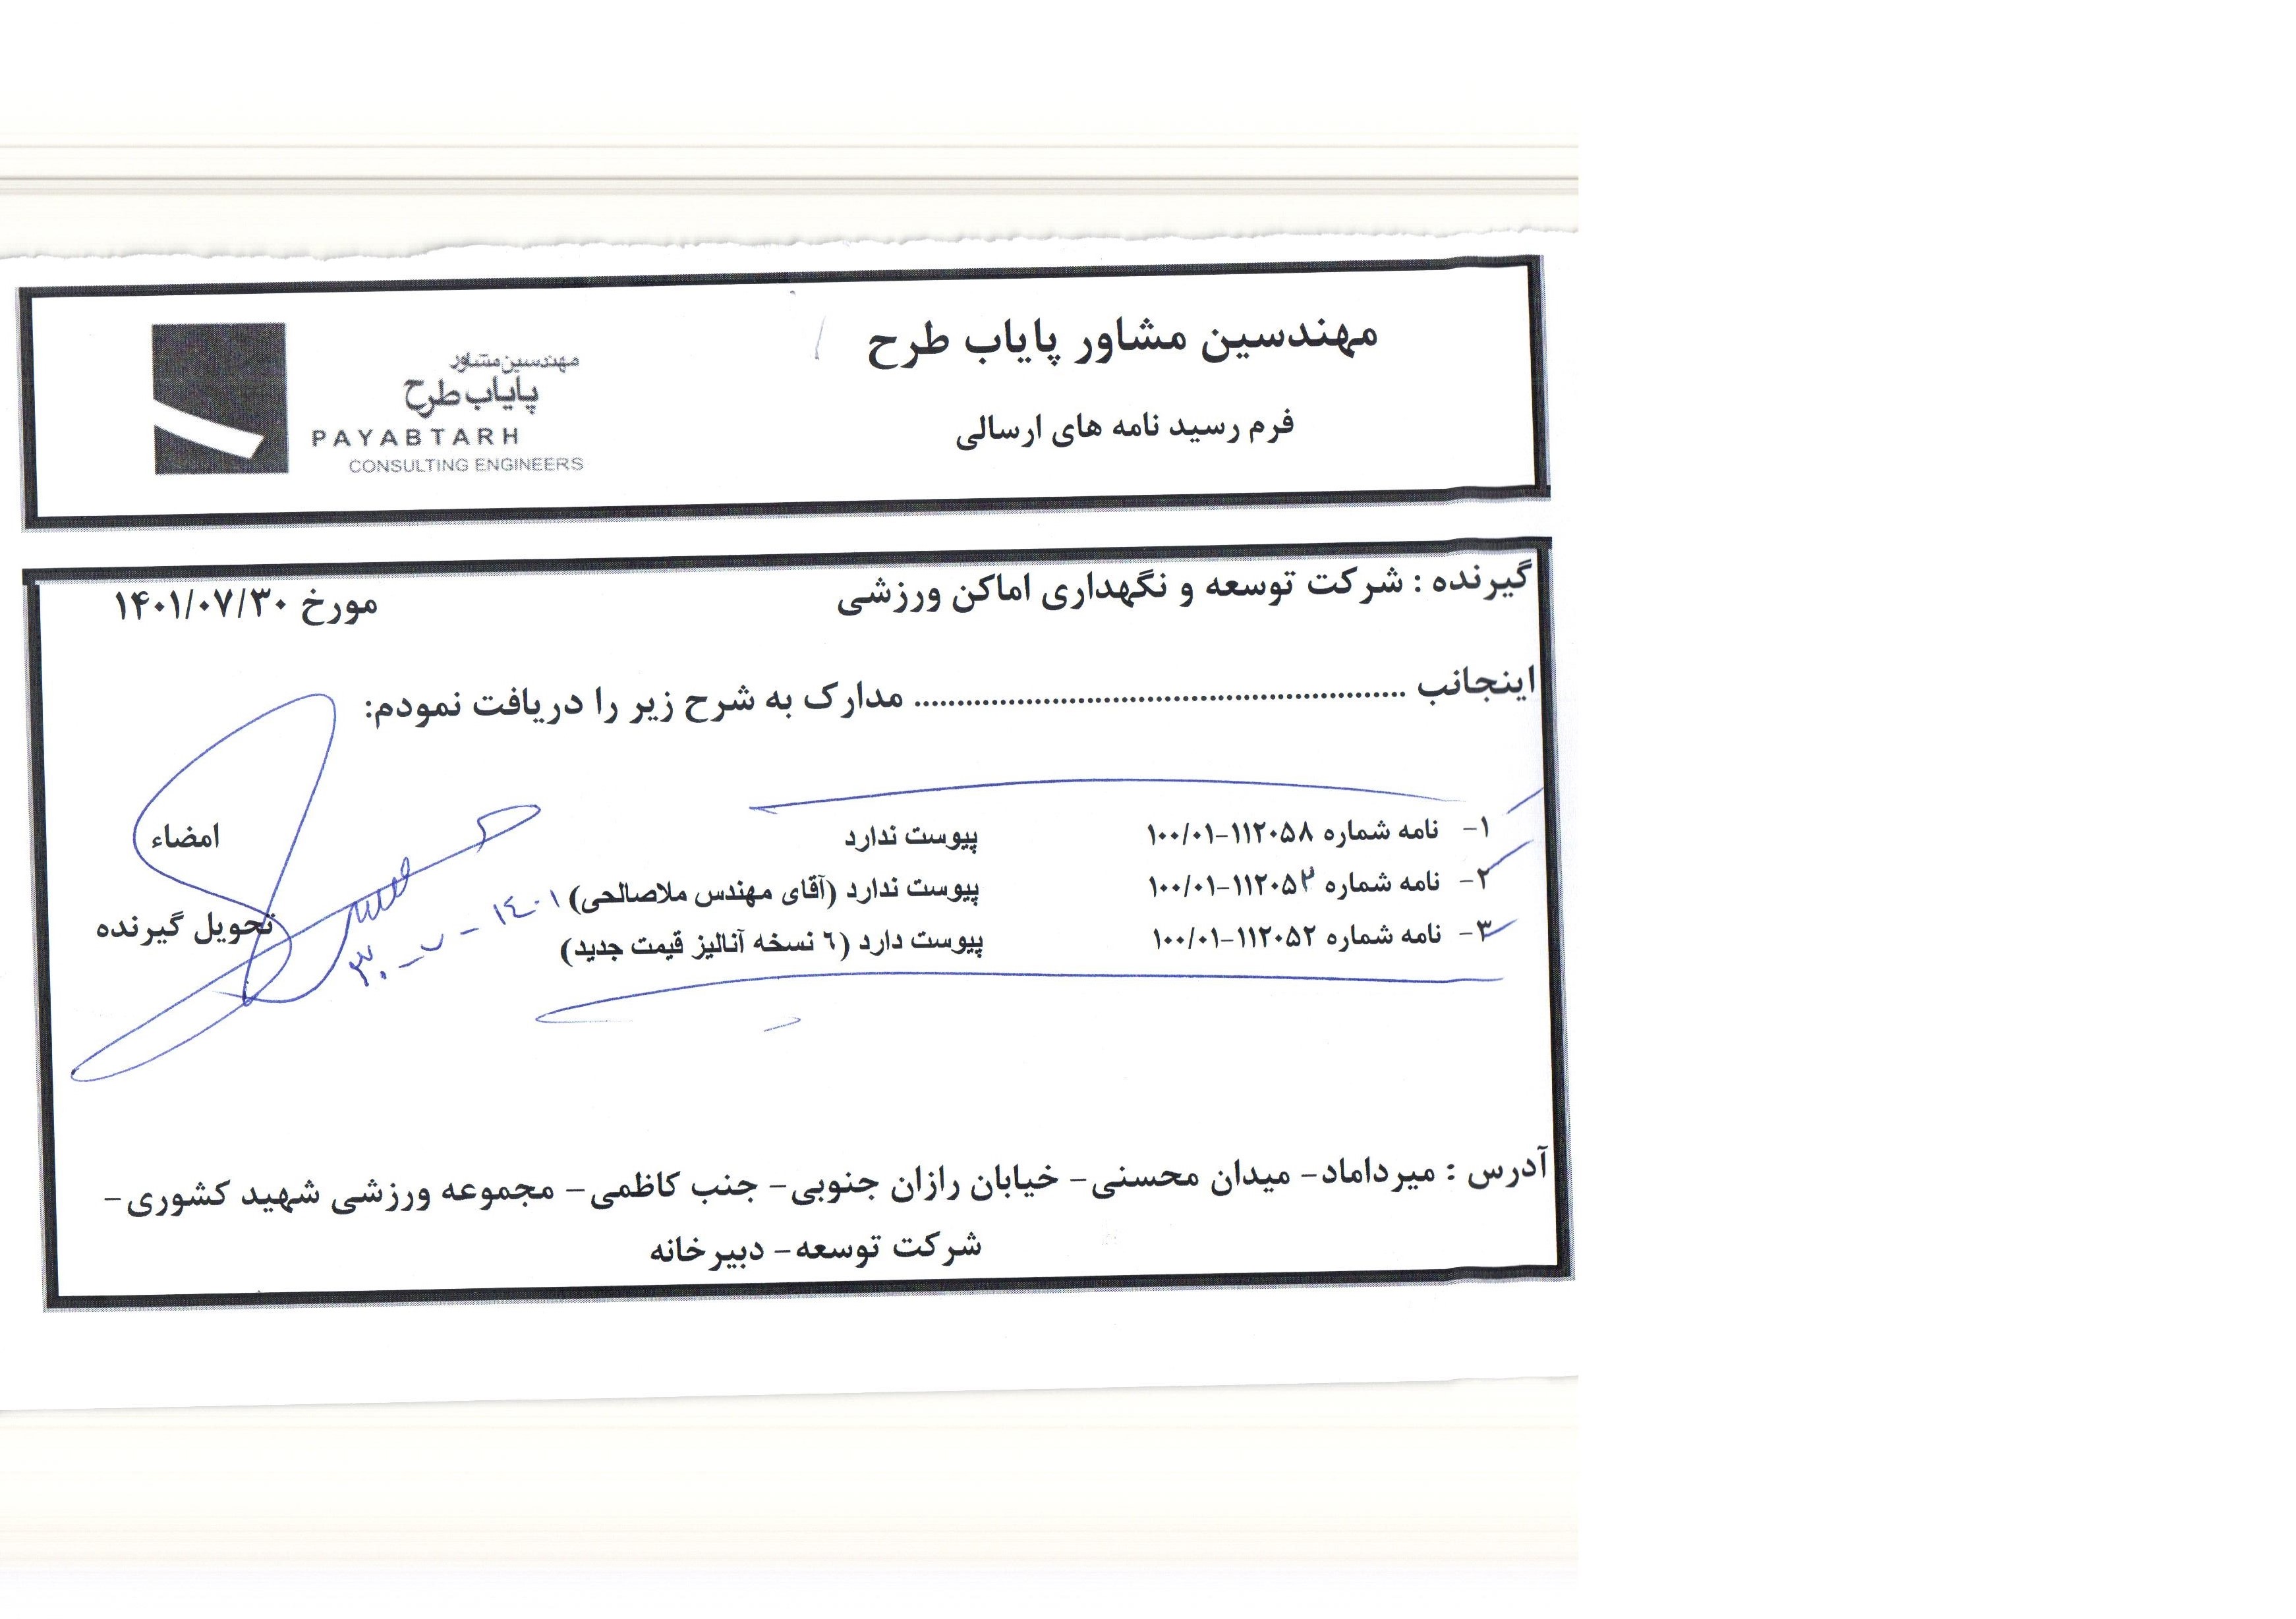 مهندسین مشاور پایاب طرح
فرم رسید نامه های ارسالی
مهندسین مشاور
پایاب طرح
PAYABTARH
CONSULTING ENGINEERS
گیرنده : شرکت توسعه و نگهداری اماکن ورزشی مورخ ۱۴۰۱/۰۷/۳۰
اینجانب ........................................................ مدارک به شرح زیر را دریافت نمودم:
۱- نامه شماره ۱۱۲۰۵۸-۱۰۰/۰۱ پیوست ندارد
امضاء
۲- نامه شماره ۱۱۲۰۵۳-۱۰۰/۰۱ پیوست ندارد (آقای مهندس ملاصالحی)
۳- نامه شماره ۱۱۲۰۵۲-۱۰۰/۰۱ پیوست دارد (۶ نسخه آنالیز قیمت جدید)
تحویل گیرنده
۳۰-۷-۱۴۰۱
آدرس : میرداماد- میدان محسنی- خیابان رازان جنوبی- جنب کاظمی- مجموعه ورزشی شهید کشوری-
شرکت توسعه- دبیرخانه